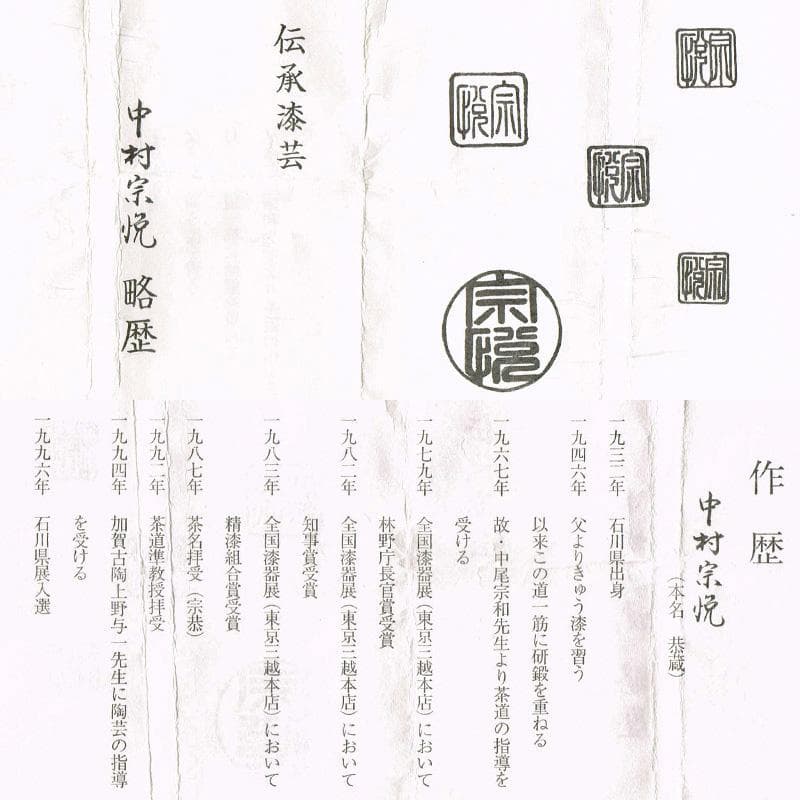 伝承漆芸
中村宗悦 略歴
宗悦
宗悦
宗悦
宗悦
宗悦
作歴
中村宗悦
(本名 恭蔵)
一九三二年 石川県出身
一九四六年 父よりきゅう漆を習う
以来この道一筋に研鍛を重ねる
一九六七年 故・中尾宗和先生より茶道の指導を
受ける
一九七九年 全国漆器展(東京三越本店)において
林野庁長官賞受賞
一九八二年 全国漆器展(東京三越本店)において
知事賞受賞
一九八三年 全国漆器展(東京三越本店)において
精漆組合賞受賞
一九八七年 茶名拝受(宗恭)
一九九二年 茶道準教授拝受
一九九四年 加賀古陶上野与一先生に陶芸の指導
を受ける
一九九六年 石川県展入選